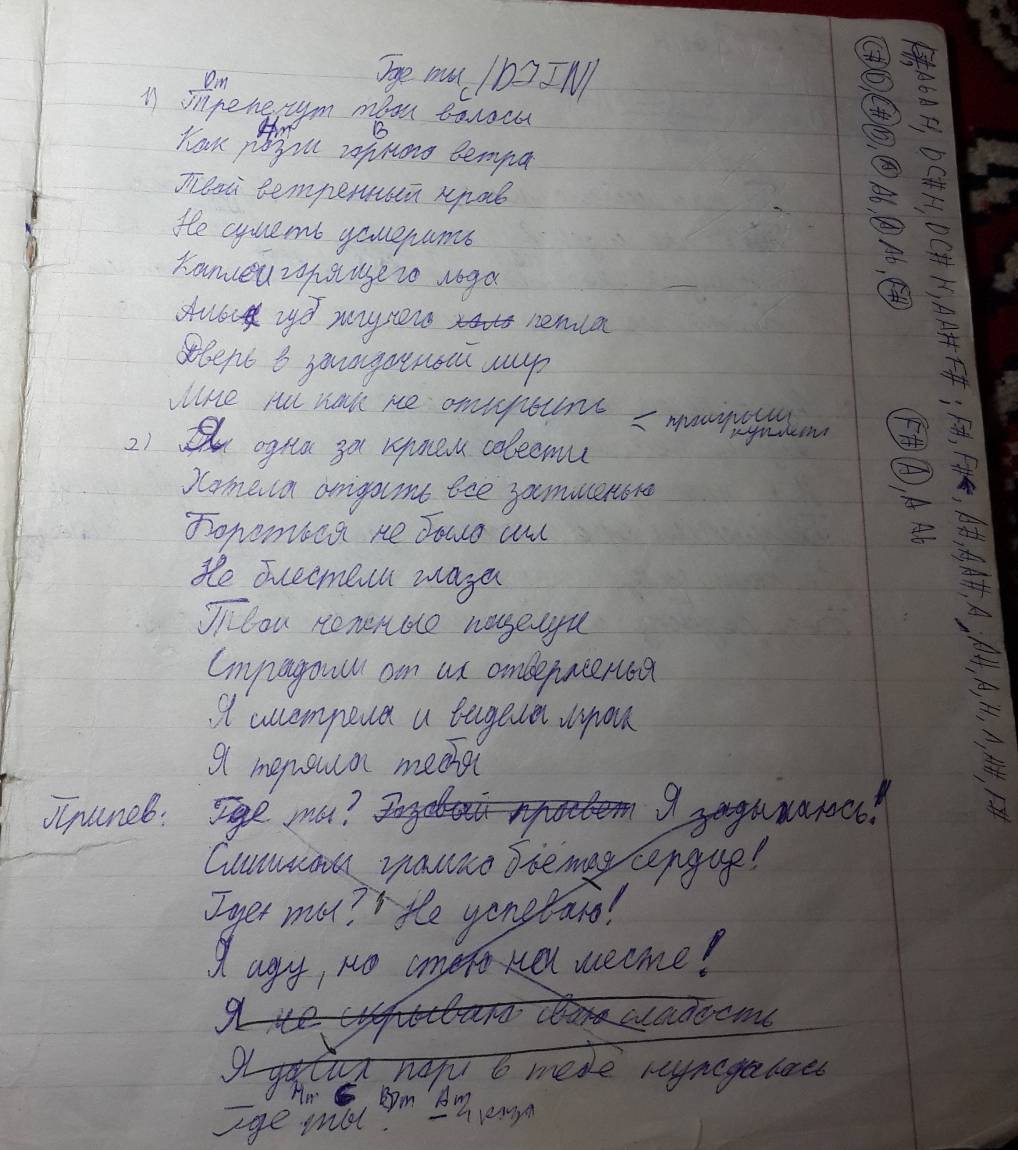 Где ты /DJIN/
Dm
1) Трепечут твои волосы
Hm B
Как розги горного ветра
Твой ветренный нрав
Не суметь усмерить
Каплей горящего льда
Алых губ жгучего пепла
Дверь в загадочный мир
Мне ни как не открыть
< проигрыш
2) Я одна за краем совести
Хотела отдать всё затменью
Бороться не было сил
Не блестели глаза
Твои нежные поцелуи
Страдали от их отверженья
Я смотрела и видела мрак
Я теряла тебя
Припев: Где ты? Розовый просвет Я задыхаюсь!
Слишком громко бьётся сердце!
Где ты? Не успеваю!
Я иду, но стою на месте!
Я не скрываю свою слабость
Я до сих пор в тебе нуждаюсь
Hm C Am
Где ты? 4 раза
C#D, C#D, A Ab, A Ab, F#
F# A, A Ab